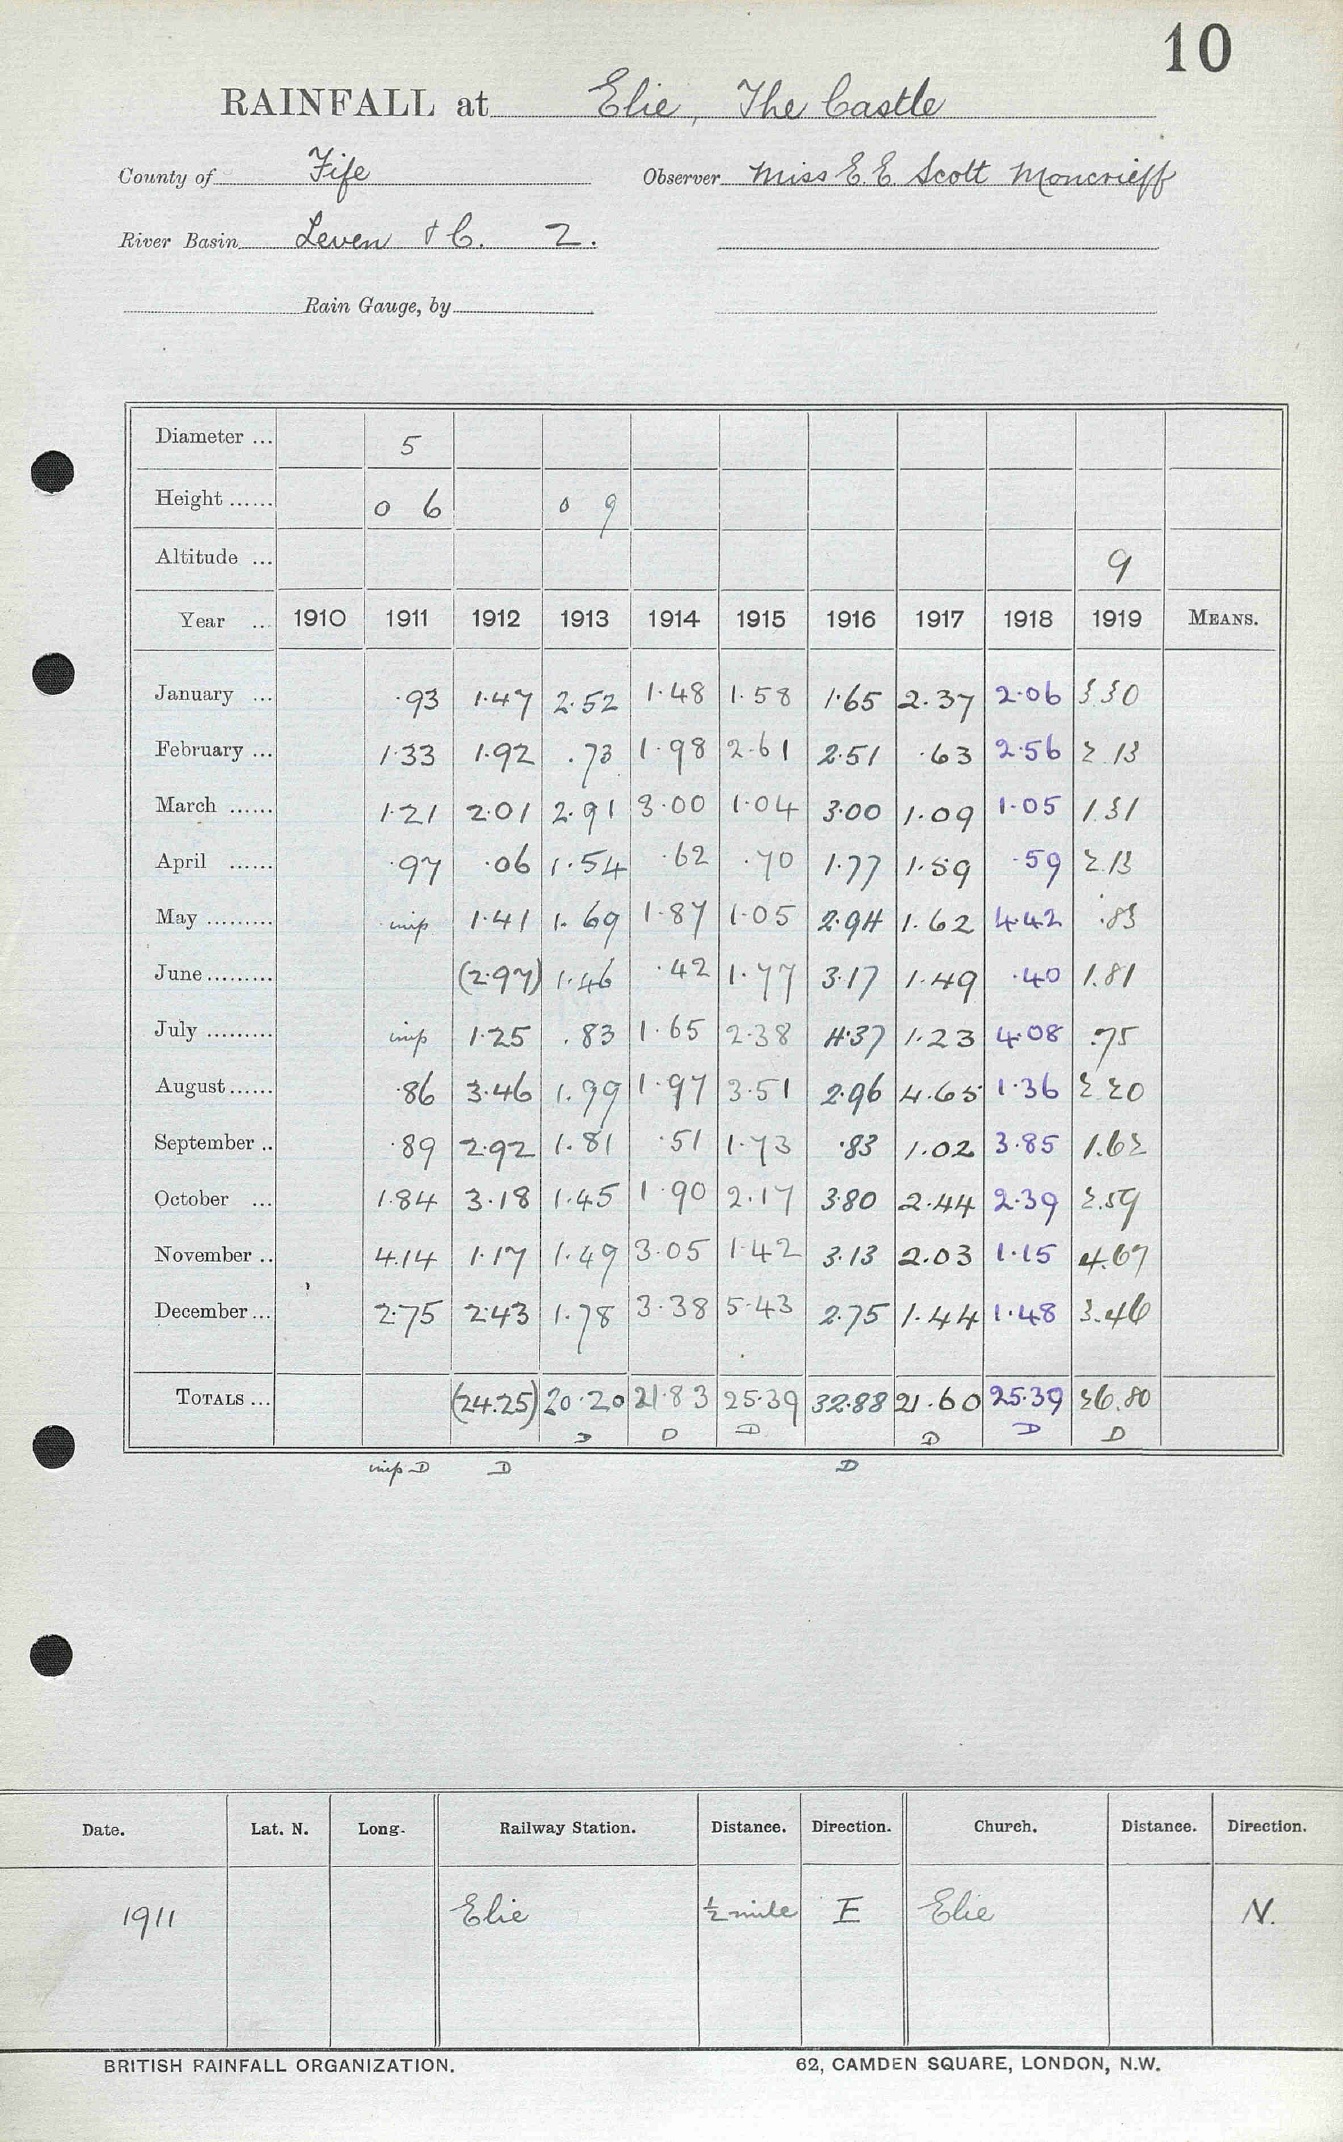 10
RAINFALL at Elie, The Castle
County of Fife Observer Miss E. E. Scott Moncrieff
River Basin Leven & C. 2.
Rain Gauge, by
Diameter ... 5
Height ...... 0 6 0 9
Altitude ... 9
Year ... 1910 1911 1912 1913 1914 1915 1916 1917 1918 1919 MEANS.
January ... ·93 1·47 2·52 1·48 1·58 1·65 2·37 2·06 3.30
February ... 1·33 1·92 .73 1·98 2·61 2·51 ·63 2·56 2.13
March ...... 1·21 2·01 2·91 3·00 1·04 3·00 1·09 1·05 1.31
April ...... ·97 ·06 1·54 ·62 ·70 1·77 1·59 ·59 2.13
May ......... imp 1·41 1·69 1·87 1·05 2·94 1·62 4·42 ·83
June ......... (2·97) 1·46 ·42 1·77 3·17 1·49 ·40 1.81
July ......... imp 1·25 .83 1·65 2·38 4·37 1·23 4·08 .75
August ...... ·86 3·46 1.99 1·97 3·51 2·96 4·65 1·36 2.20
September .. ·89 2·92 1·81 ·51 1·73 ·83 1·02 3·85 1.62
October ... 1·84 3·18 1·45 1·90 2·17 3·80 2·44 2·39 2.59
November .. 4·14 1·17 1·49 3·05 1·42 3·13 2·03 1·15 4.67
December ... 2·75 2·43 1·78 3·38 5·43 2·75 1·44 1·48 3.46
TOTALS ... (24.25) 20·20 21·83 25·39 32·88 21·60 25·39 26.80
D D D D D D
imp D D D
Date. Lat. N. Long. Railway Station. Distance. Direction. Church. Distance. Direction.
1911 Elie ½ mile E Elie N.
BRITISH RAINFALL ORGANIZATION. 62, CAMDEN SQUARE, LONDON, N.W.